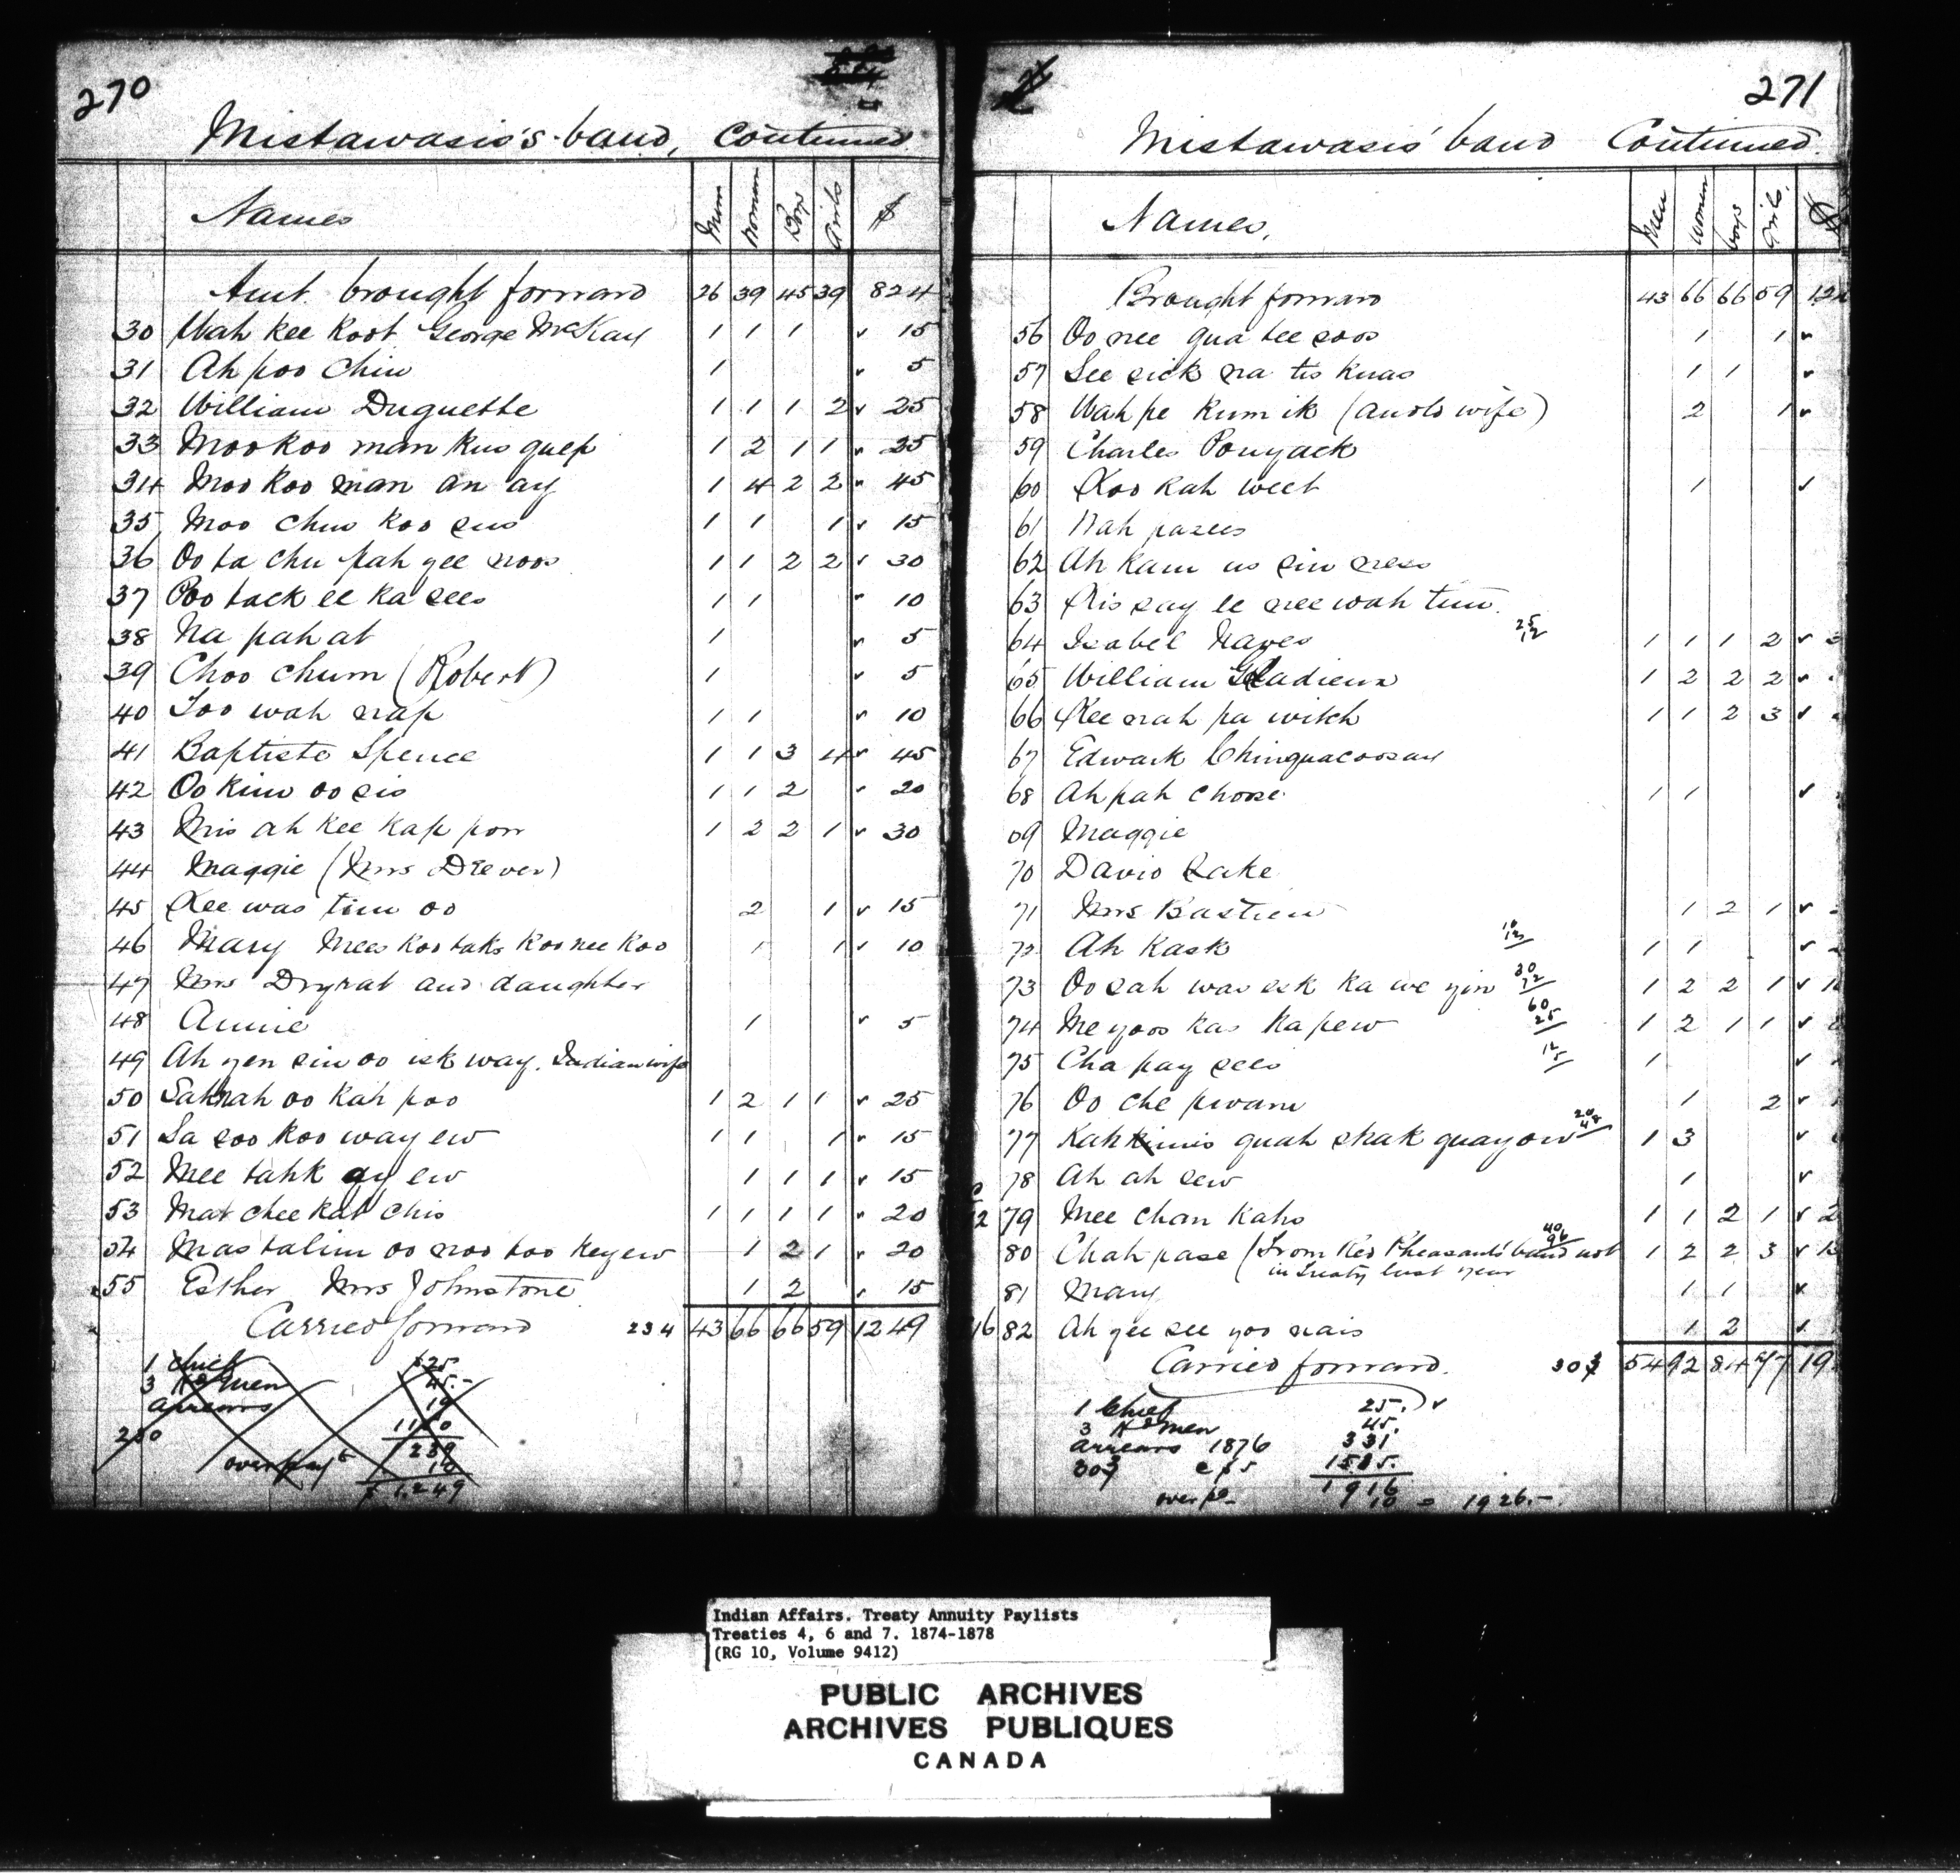 270
Mistawasis's band, Continued
Names Men Women Boys Girls $
Amt. brought forward 26 39 45 39 824
30 Wah kee koot George McKay 1 1 1 v 15
31 Ah poo chin 1 v 5
32 William Duquette 1 1 1 2 v 25
33 Moo koo man kus quep 1 2 1 1 v 25
34 Moo koo man an ay 1 4 2 2 v 45
35 Moo chu koo sus 1 1 1 v 15
36 Oo ta chu pah yee noos 1 1 2 2 v 30
37 Poo tack ee ka sees 1 1 v 10
38 Na pah at 1 v 5
39 Choo chum (Robert) 1 v 5
40 Too wah nap 1 1 v 10
41 Baptiste Spence 1 1 3 4 v 45
42 Oo kim oo sis 1 1 2 v 20
43 Mis ah kee kap pow 1 2 2 1 v 30
44 Maggie (Mrs Drever)
45 Kee was tim oo 2 1 v 15
46 Mary Mees koo taks koo nee koo 1 1 v 10
47 Mrs Drynat and daughter
48 Annie 1 v 5
49 Ah yen sin oo isk way. Indian wife
50 Sak nah oo kah poo 1 2 1 1 v 25
51 Sa soo koo way ew 1 1 1 v 15
52 Mee tahk ay ew 1 1 1 v 15
53 Mat chee kat chis 1 1 1 1 v 20
54 Mas talim oo noo too keyew 1 2 1 v 20
55 Esther Mrs Johnstone 1 2 v 15
Carried forward 234 43 66 66 59 1249
1 Chief $25
3 Hd men 45.-
arrears 10
over pay't 10
$1,249
271
Mistawasis' band Continued.
Names. Men Women boys Girls. $
Brought forward 43 66 66 59
56 Oo nee qua tee soos 1 1 v
57 See sick na tis kuas 1 1 v
58 Wah pe kum ik (an old wife) 2 1 v
59 Charles Pouyack
60 Koo kah weet 1 v
61 Nah pasees
62 Ah kam us sin ness
63 Kis say ee nee wah tim.
64 Isabel Nayes 25 12 1 1 1 2 v
65 William Gladieux 1 2 2 2 v
66 Kee nah pa witch 1 1 2 3 v
67 Edwark Chinquacoosay
68 Ah pah choose 1 1 v
69 Maggie
70 David Lake
71 Mrs Bastien 1 2 1 v
72 Ah Kask 10 12 1 1 v
73 Oo sah was esk ka we yin 30 72 1 2 2 1 v
74 Me yoos kas ka pew 60 25 1 2 1 1 v
75 Cha pay sees 12 5 1 v
76 Oo che pwam 1 2 v
77 Kah kimis quah shak quayow 20 48 1 3 v
78 Ah ah sew 1 v
79 Mee chan kahs 1 1 2 1 v
80 Chah pase (From Red Pheasants band not 40 96 1 2 2 3 v
in Treaty last year
81 Mary 1 1
82 Ah yee see yoo nais 1 2 v
Carried forward. 303 54 92 84 77
1 Chief 25. v
3 Hd men 45.
arrears 1876 331
303 @ $5 1515.
1916
over pd- 10 = 1926.-
Indian Affairs. Treaty Annuity Paylists
Treaties 4, 6 and 7. 1874-1878
(RG 10, Volume 9412)
PUBLIC ARCHIVES
ARCHIVES PUBLIQUES
CANADA